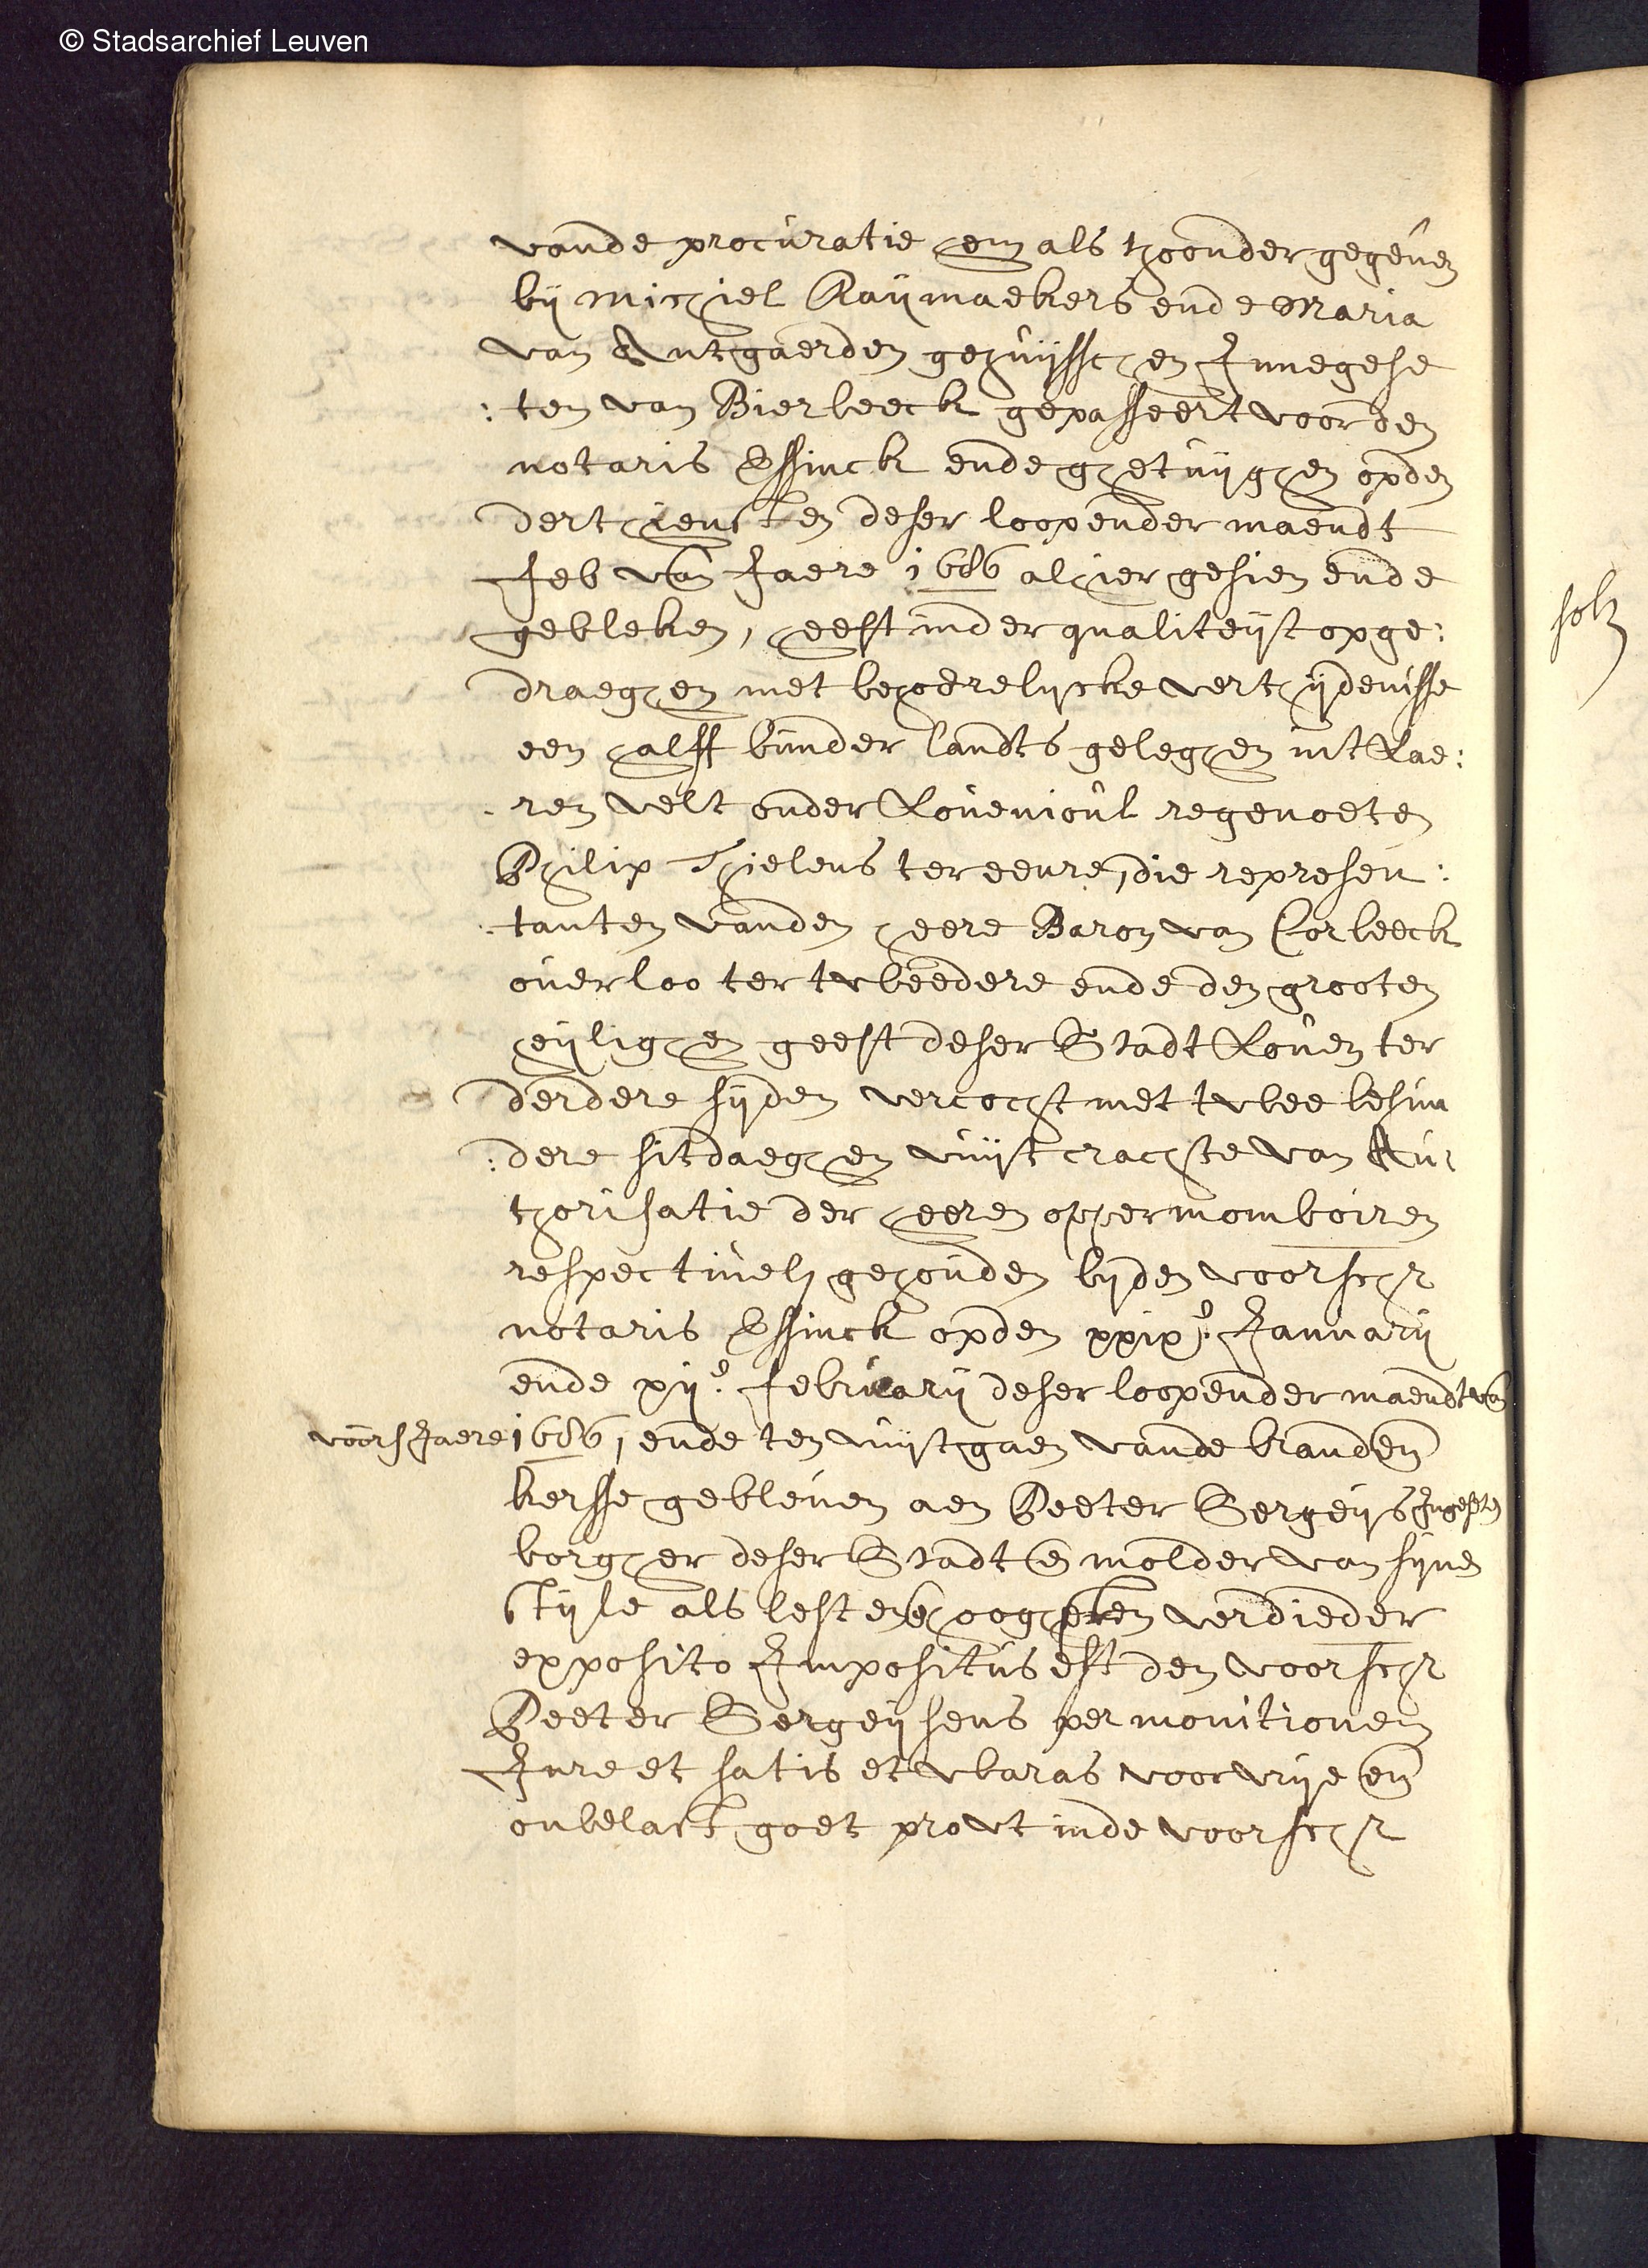 © Stadsarchief Leuven
vande procuratie hem als thoonder gegeven
bij Michiel Raijmaekers ende Maria
van Autgaerden gehuijsschen Innegese
:ten van Bierbeeck gepasseert voor den
notaris Essinck ende ghetuijghen opden
derthiensten deser loopender maendt
feb van Jaere 1686 alhier gesien ende
gebleken, heeft inder qualiteijt opge:
draeghen met behoerelijcke verthijdenisse
een halff bunder landts geleghen int Lae:
:ren velt onder Lovenioul regenoeten
Philip Thielens ter eenre, die represen:
:tanten vanden heere Baron van Corbeeck
overloo ter tweedere ende den grooten
heijlighen geest deser Stadt Loven ter
derdere sijden vercocht met twee besun
:dere sitdaeghen vuijt crachte van Au:
thorisatie der heeren oppermomboiren
respectivelij gehouden bijden voorschr
notaris Essinck opden xxixe. Januarij
ende xije. februarij deser loopender maendt van
voors Jaere 1686, ende ten vuijtgaen vande branden
kersse gebleven aen Peeter Sergeijs Ingeseten
borgher deser Stadt en molder van sijne
stijle als lesten hooghsten verdieder
exposito Impositus est den voorschr
Peeter Sergeijsens per monitionem
Jure et satis et waras voor vrije en
onbelast goet prout inde voorschr
solz